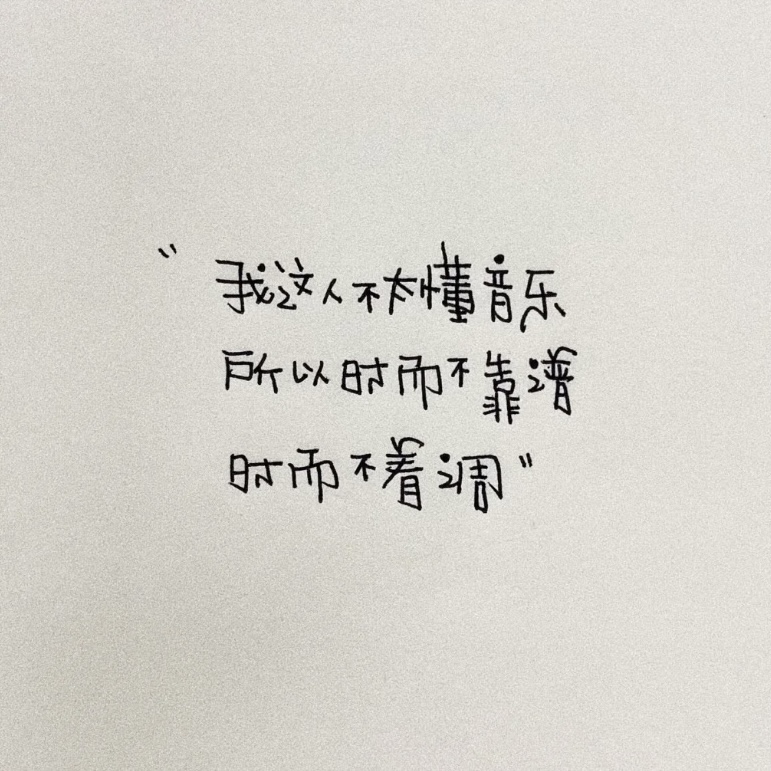 “我这人不太懂音乐
所以时而不靠谱
时而不着调”